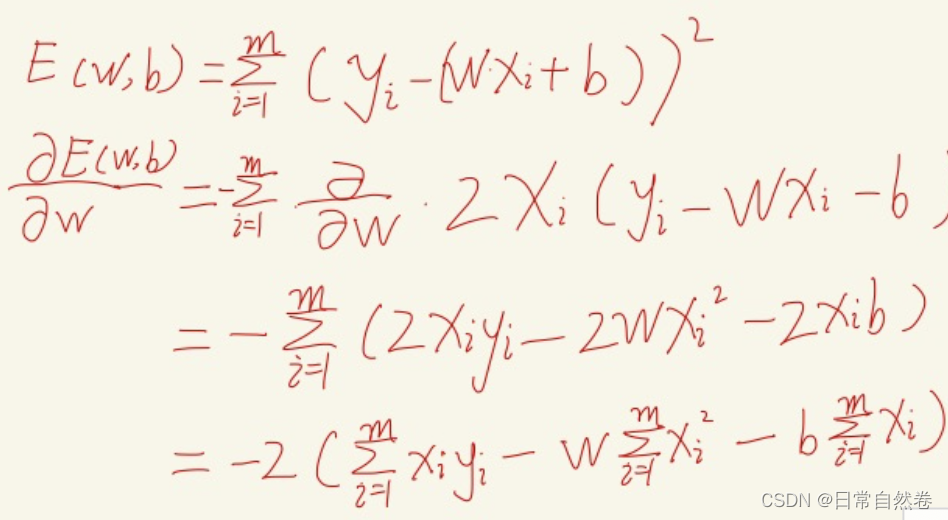 E(w,b) = \sum_{i=1}^{m} (y_i - (w x_i + b))^2
\frac{\partial E(w,b)}{\partial w} = -\sum_{i=1}^{m} \frac{\partial}{\partial w} \cdot 2x_i (y_i - w x_i - b)
= -\sum_{i=1}^{m} (2x_i y_i - 2w x_i^2 - 2x_i b)
= -2 (\sum_{i=1}^{m} x_i y_i - w \sum_{i=1}^{m} x_i^2 - b \sum_{i=1}^{m} x_i)
CSDN @日常自然卷